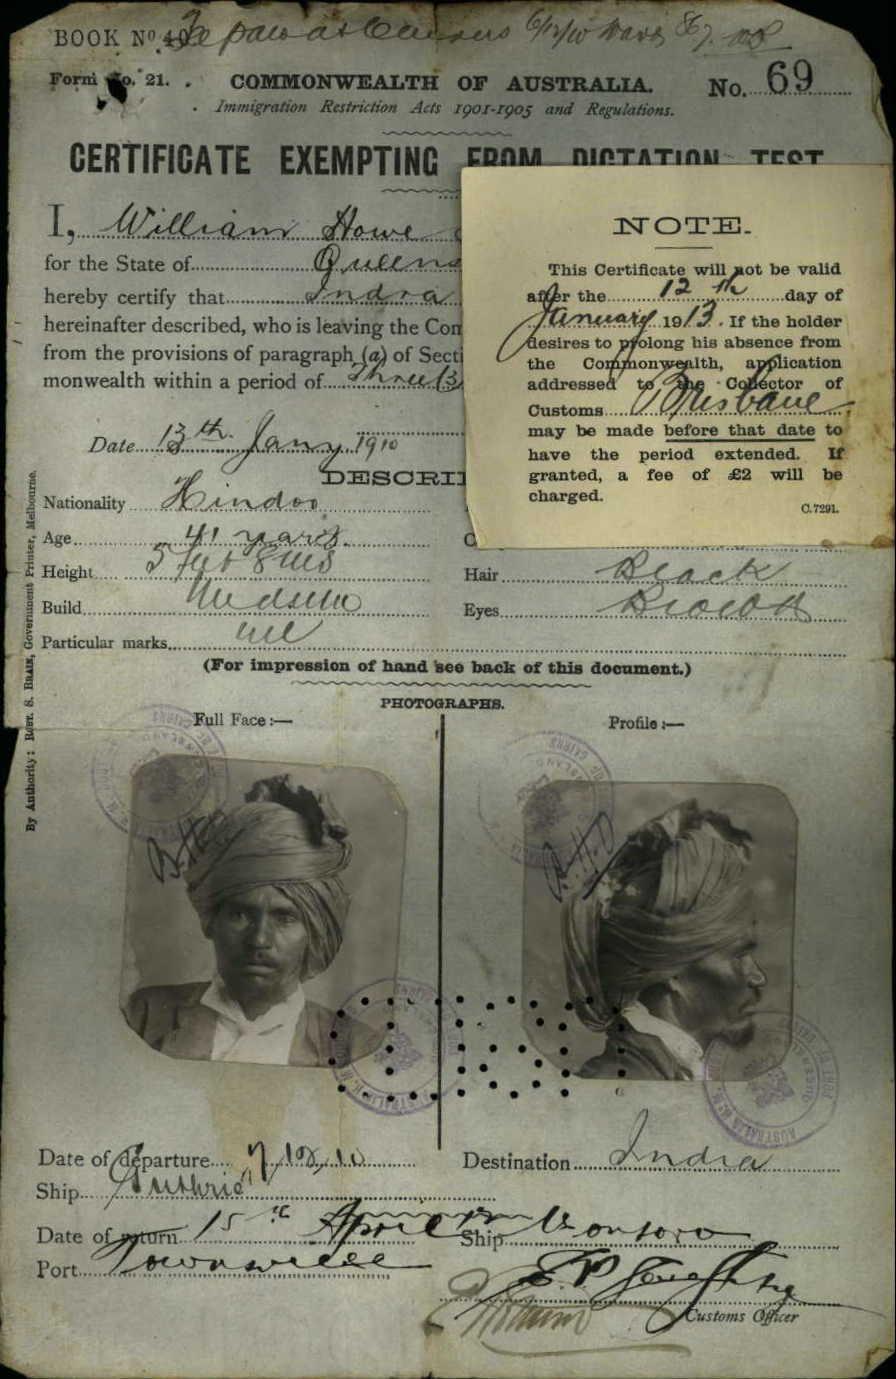 BOOK No
Form No. 21.
COMMONWEALTH OF AUSTRALIA.
No. 69
Immigration Restriction Acts 1901-1905 and Regulations.
CERTIFICATE EXEMPTING FROM DICTATION TEST
I, William Howe
for the State of Queens
hereby certify that Indra
hereinafter described, who is leaving the Com
from the provisions of paragraph (a) of Secti
monwealth within a period of Three (3
Date 13th Jany 1910
DESCRI
Nationality Hindoo
Age 41 years.
Height 5 feet 8 ins
Build Medium
Particular marks nil
Hair Black
Eyes Brown
NOTE.
This Certificate will not be valid
after the 12th day of
January 1913. If the holder
desires to prolong his absence from
the Commonwealth, application
addressed to the Collector of
Customs Brisbane
may be made before that date to
have the period extended. If
granted, a fee of £2 will be
charged.
C.7291.
(For impression of hand see back of this document.)
PHOTOGRAPHS.
Full Face :—
Profile :—
By Authority: ROBT. S. BRAIN, Government Printer, Melbourne.
Date of departure 7/12/10
Destination India
Ship Guthrie
Date of return 15th April
Ship
Port Townsville
Customs Officer